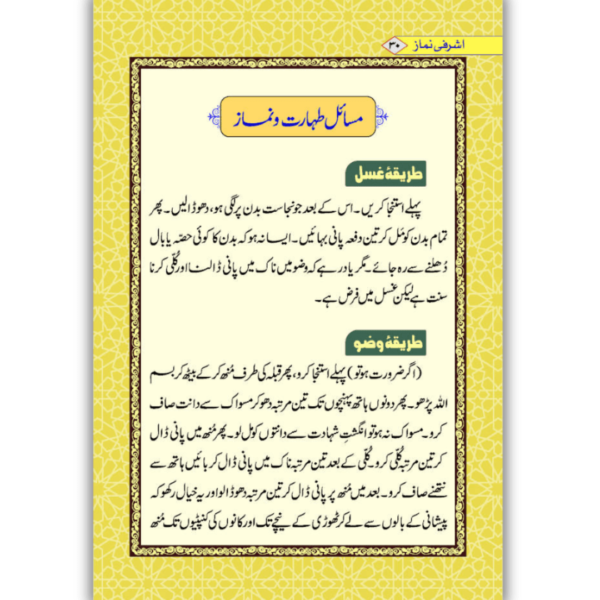 اشرفی نماز ۳۰
مسائل طہارت و نماز
طریقۂ غسل
پہلے استنجا کریں۔ اس کے بعد جو نجاست بدن پر لگی ہو، دھو ڈالیں۔ پھر
تمام بدن کو مَل کر تین دفعہ پانی بہائیں۔ ایسا نہ ہو کہ بدن کا کوئی حصّہ یا بال
دُھلنے سے رہ جائے۔ مگر یاد رہے کہ وضو میں ناک میں پانی ڈالنا اور کُلّی کرنا
سنت ہے لیکن غسل میں فرض ہے۔
طریقۂ وضو
(اگر ضرورت ہو تو) پہلے استنجا کرو، پھر قبلہ کی طرف مُنھ کر کے بیٹھ کر بسم
اللہ پڑھو۔ پھر دونوں ہاتھ پہنچوں تک تین مرتبہ دھو کر مسواک سے دانت صاف
کرو۔ مسواک نہ ہو تو انگشتِ شہادت سے دانتوں کو مل لو۔ پھر مُنھ میں پانی ڈال
کر تین مرتبہ کُلّی کرو۔ کُلّی کے بعد تین مرتبہ ناک میں پانی ڈال کر بائیں ہاتھ سے
نتھنے صاف کرو۔ بعد میں مُنھ پر پانی ڈال کر تین مرتبہ دھو ڈالو اور یہ خیال رکھو کہ
پیشانی کے بالوں سے لے کر ٹھوڑی کے نیچے تک اور کانوں کی کنپٹیوں تک مُنھ